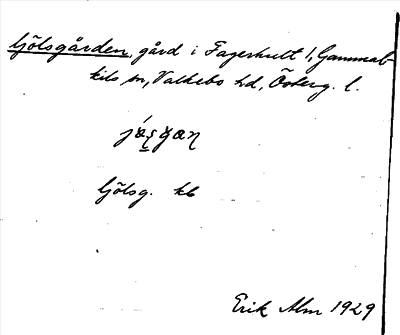 Gjölsgården, gård i Fagerhult 1, Gammal-
kils sn, Valkebo hd, Österg. l.
Gjölsg. kb
Erik Alm 1929